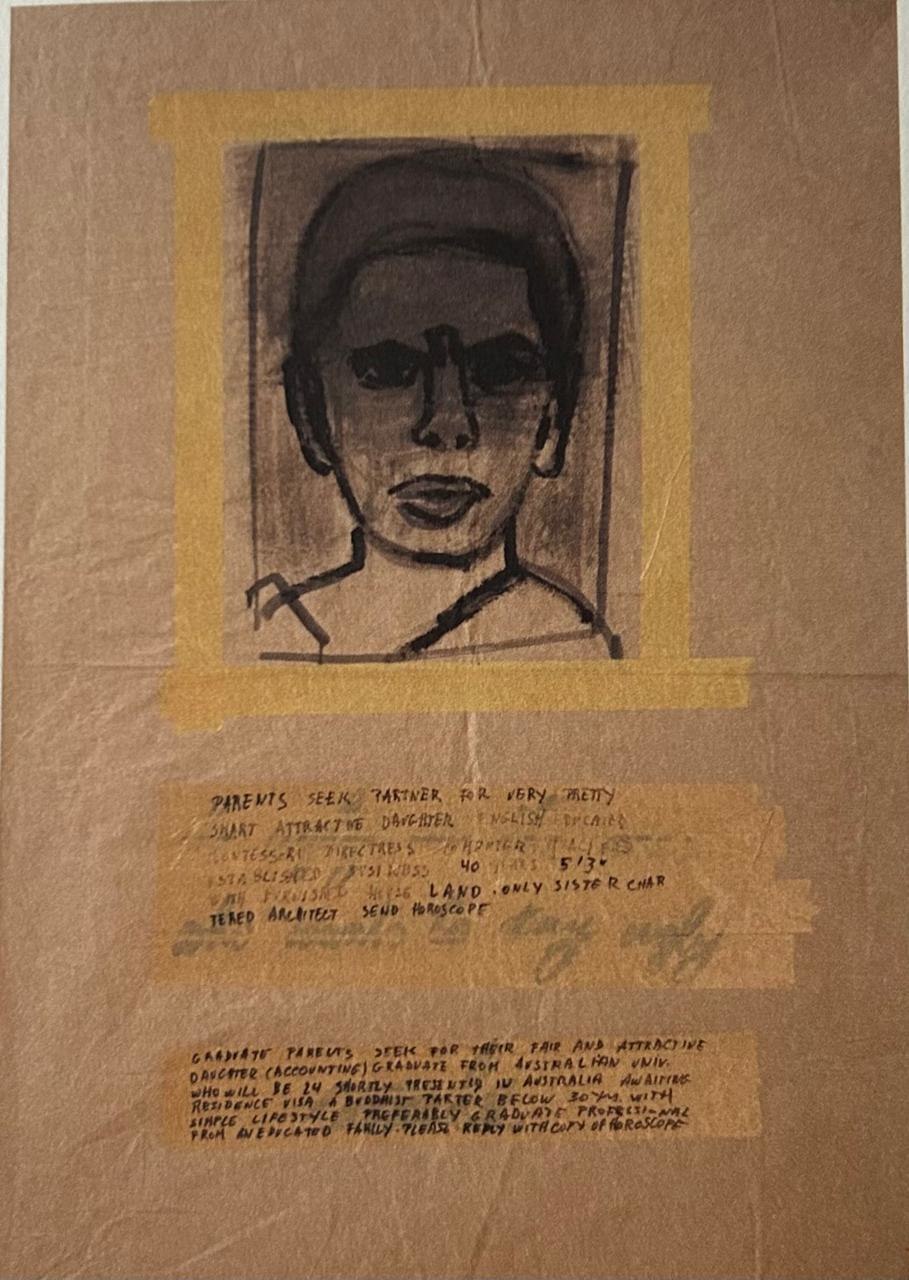 PARENTS SEEK PARTNER FOR VERY PRETTY
SMART ATTRACTIVE DAUGHTER ENGLISH EDUCATED
MONTESSORI DIRECTRESS
ESTABLISHED BUSINESS 40 YEARS 5'3"
WITH FURNISHED HOUSE LAND . ONLY SISTER CHAR
TERED ARCHITECT SEND HOROSCOPE
to stay ugly
GRADUATE PARENTS SEEK FOR THEIR FAIR AND ATTRACTIVE
DAUGHTER (ACCOUNTING) GRADUATE FROM AUSTRALIAN UNIV.
WHO WILL BE 24 SHORTLY PRESENTLY IN AUSTRALIA AWAITING
RESIDENCE VISA A BUDDHIST PARTER BELOW 30 YRS WITH
SIMPLE LIFESTYLE PREFERABLY GRADUATE PROFESSIONAL
FROM AN EDUCATED FAMILY. PLEASE REPLY WITH COPY OF HOROSCOPE